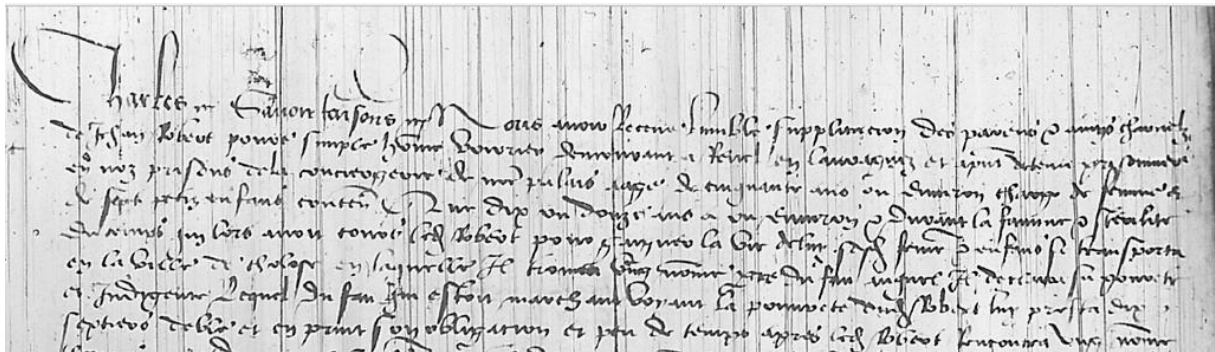 Charles etc. Savoir faisons etc. Nous avoir receue l'umble supplicacion des parens et amys charnelz
de Jehan Robert povre simple homme bovrier demourant a Revel en Lauraguez et a present detenu prisonnier
en noz prisons de la conciergerie de nostre palais aagé de cinquante ans ou environ chargé de femme et
de sept petiz enfans contenant Que dix ou douze ans a ou environ et durant la famine et sterilité
du temps qui lors avoit cours led. Robert pour gaigner la vie de luy sesd. femme et enfans se transporta
en la ville de Tholose en laquelle il trouva ung nommé du Fau auquel il declaira sa povreté
et indigence Lequel du Fau qui estoit marchant voyant la pouvreté dud. Robert luy presta dix
septiers de blé et en print son obligation et peu de temps apres led. Robert rencontra ung nommé